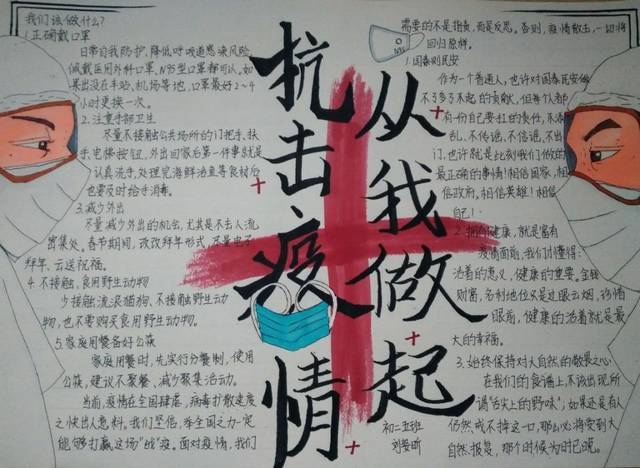 我们该做什么?
1.正确戴口罩
日常自我防护,降低呼吸道感染风险,
佩戴医用外科口罩、N95型口罩都可以,如
果出没在车站、机场等地,口罩最好2~4
小时更换一次。
2.注重手部卫生
尽量不接触公共场所的门把手、扶
手、电梯按钮,外出回家后第一件事就是
认真洗手,处理完海鲜活禽等食材后
也要及时给手消毒。
3.减少外出
尽量减少外出的机会,尤其是不去人流
密集处。春节期间,改改拜年形式,尽量电子
拜年、云送祝福。
4.不接触、食用野生动物
少接触流浪猫狗,不接触野生动
物,也不要购买食用野生动物。
5.家庭用餐备好公筷
家庭用餐时,先实行分餐制,使用
公筷,建议不聚餐,减少聚集活动。
当前,疫情在全国肆虐,病毒扩散速度
之快出人意料。我们坚信,举全国之力一定
能够打赢这场“战”疫。面对疫情,我们
抗击疫情
从我做起
初二五班
需要的不是指责,而是反思。否则,疫情散去,一切将
回归原样。
1.国泰则民安
作为一个普通人,也许对国泰民安做
不了多了不起的贡献,但每个人都
有份自己要担的责任,不添
乱,不传谣,不信谣,不出
门,也许就是此刻我们做的
最正确的事情!相信国家,相
信政府,相信英雄!相信
自己!
2.拥有健康,就是富有
疫情面前,我们才懂得:
活着的意义,健康的重要。金钱
财富,名利地位只是过眼云烟,珍惜
眼前,健康的活着就是最
大的幸福。
3.始终保持对大自然的敬畏之心
在我们的食谱上,不该出现所
谓“舌尖上的野味”,如果还是有人
仍然戒不掉这一口,那么必将受到大
自然报复,那个时候为时已晚。